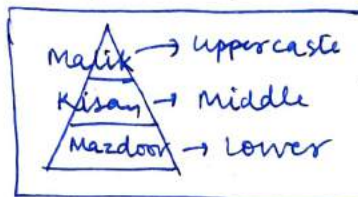 Malik → Uppercaste
Kisan → Middle
Mazdoor → Lower